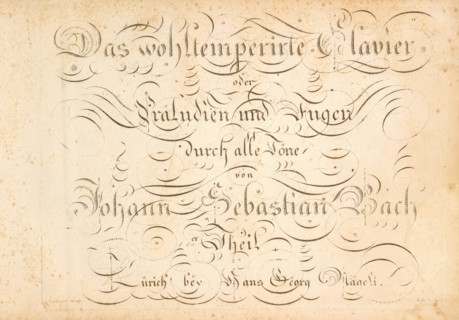 Das wohltemperirte Clavier
oder
Præludien und Fugen
durch alle Töne
von
Johann Sebastian Bach
Theil
Zürich bey Hans Georg Nägeli.